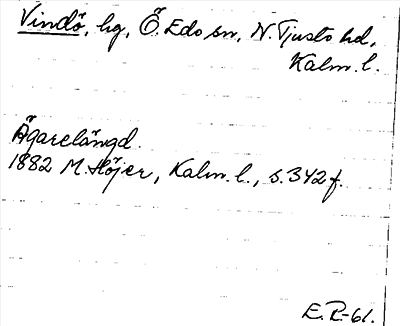 Vindö, hg, Ö. Edo sn, N. Tjusto hd,
Kalm. l.
Ägarelängd.
1882 M. Höjer, Kalm. l., s. 342 f.
E. R-61.